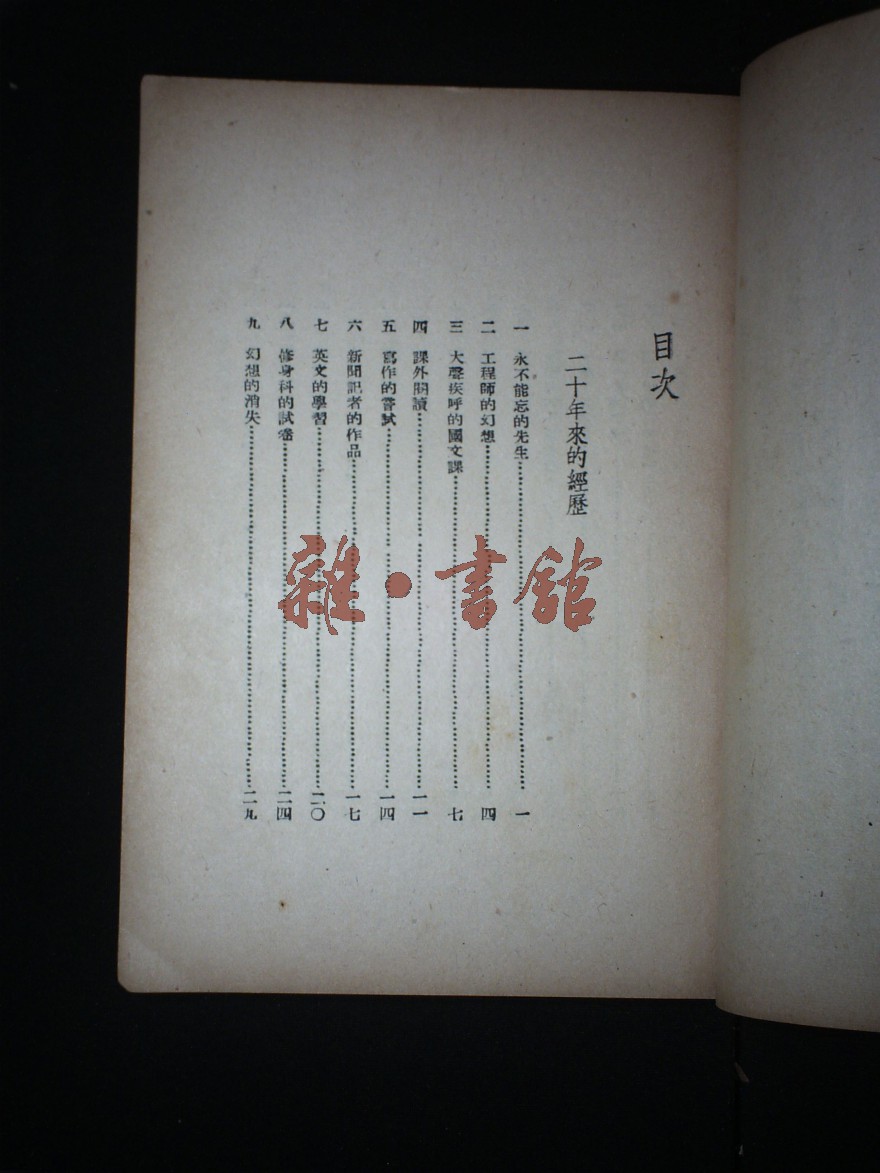 目次
二十年來的經歷
一 永不能忘的先生……一
二 工程師的幻想……四
三 大聲疾呼的國文課……七
四 課外閱讀……一一
五 寫作的嘗試……一四
六 新聞記者的作品……一七
七 英文的學習……二〇
八 修身科的試卷……二四
九 幻想的消失……二九
雜·書館